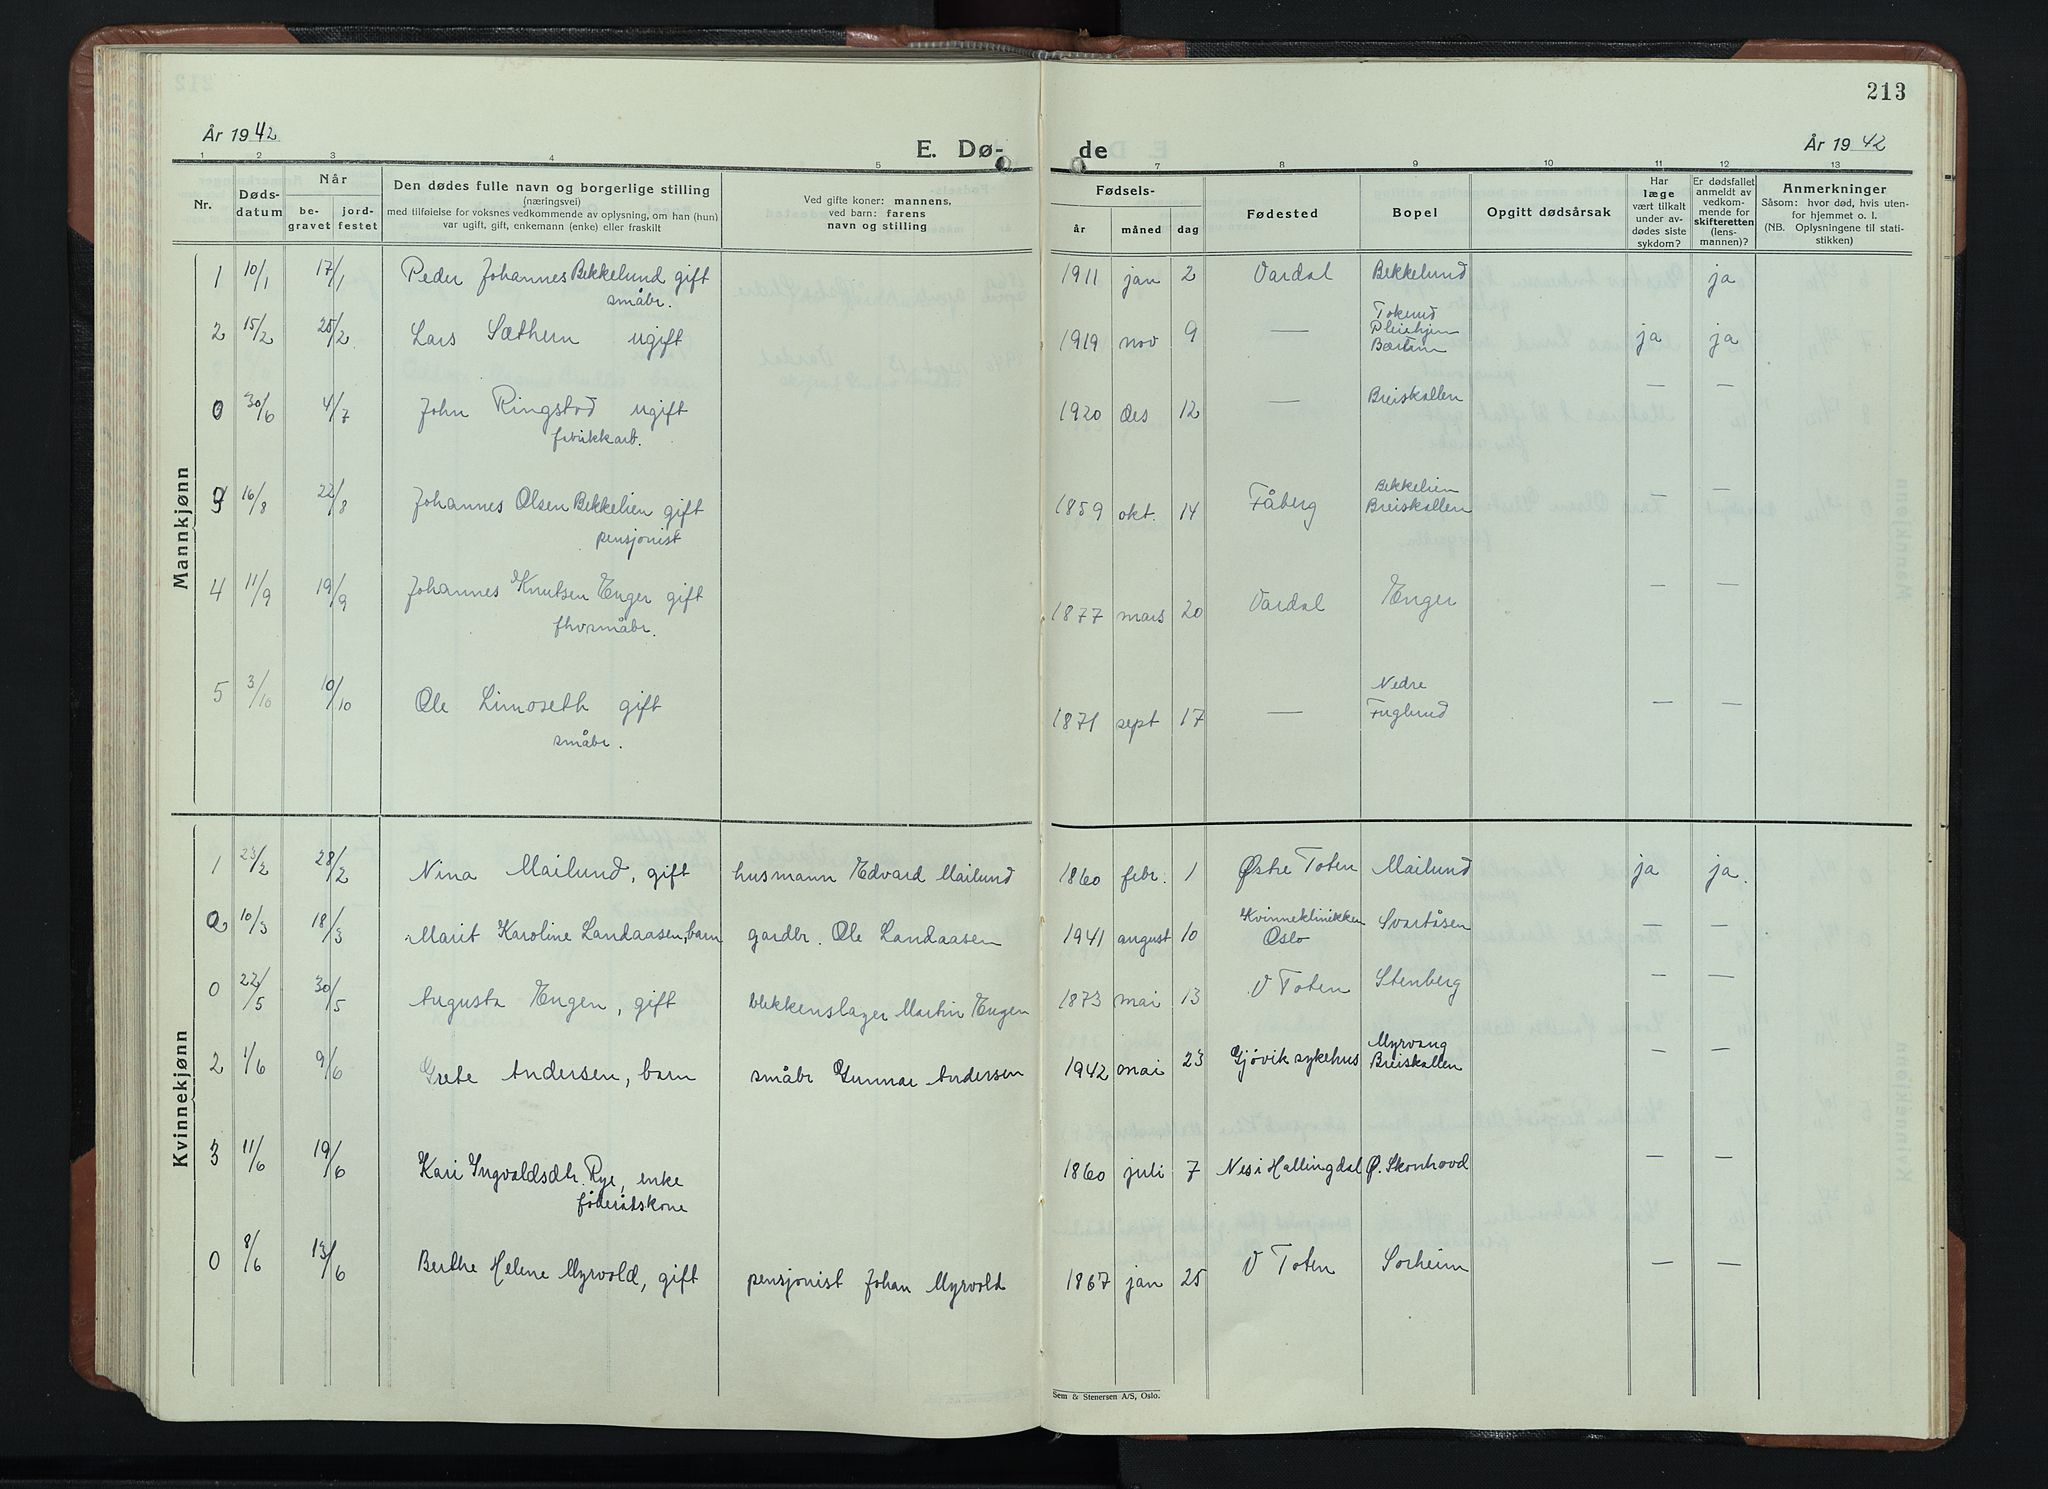 213
År 1942
E. Dø-
de
År 1942
1 2 3 4 5 7 8 9 10 11 12 13
Nr.
Døds-
datum
Når
be-
gravet
jord-
festet
Den dødes fulle navn og borgerlige stilling
(næringsvei)
med tilføielse for voksnes vedkommende av oplysning, om han (hun)
var ugift, gift, enkemann (enke) eller fraskilt
Ved gifte koner: mannens,
ved barn: farens
navn og stilling
Fødsels-
år måned dag
Fødested
Bopel
Opgitt dødsårsak
Har
læge
vært tilkalt
under av-
dødes siste
sykdom?
Er dødsfallet
anmeldt av
vedkom-
mende for
skifteretten
(lens-
mannen)?
Anmerkninger
Såsom: hvor død, hvis uten-
for hjemmet o. l.
(NB. Oplysningene til stati-
stikken)
Mannkjønn
1 10/1 17/1 Peder Johannes Bekkelund gift 1911 jan 2 Vardal Bekkelund ja
småbr.
Tokerud
2 15/2 25/2 Lars Sæthern ugift 1919 nov 9 — Pleiehjem ja ja
Bærum
0 30/6 4/7 John Ringstad ugift 1920 des 12 — Breiskallen — —
fabrikkarb.
Bekkelien
3 16/8 22/8 Johannes Olsen Bekkelien gift 1859 okt. 14 Fåberg Breiskallen — —
pensjonist
4 11/9 19/9 Johannes Knutsen Enger gift 1877 mars 20 Vardal Enger — —
fhv småbr.
Nedre
5 3/10 10/10 Ole Limoseth gift 1871 sept 17 — Fuglund — —
småbr.
Kvinnekjønn
1 23/2 28/2 Nina Mailund, gift husmann Edvard Mailund 1860 febr. 1 Østre Toten Mailund ja ja.
2 10/3 18/3 Marit Karoline Landaasen, barn gardbr. Ole Landaasen 1941 august 10 Kvinneklinikken Svartåsen — —
Oslo
0 22/5 30/5 Augusta Engen, gift blikkenslager Martin Engen 1873 mai 13 V Toten Stenberg — —
Myrvang
2 4/6 9/6 Grete Andersen, barn småbr Gunnar Andersen 1942 mai 23 Gjøvik sykehus Breiskallen — —
3 11/6 19/6 Kari Ingvaldsdtr. Rye, enke 1860 juli 7 Nes i Hallingdal Ø. Skonhovd — —
føderådskone
0 8/6 13/6 Berthe Helene Myrvold, gift pensjonist Johan Myrvold 1867 jan 25 V Toten Sorheim — —
Sem & Stenersen A/S, Oslo.